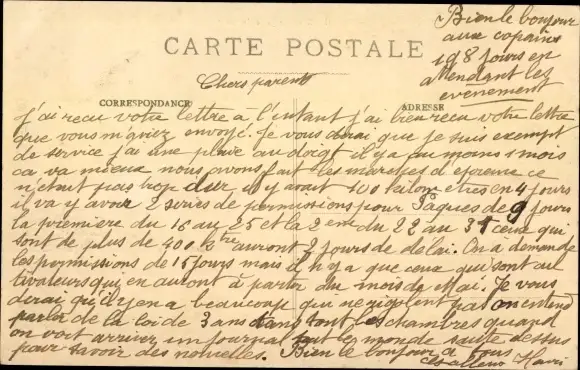 Bien le bonjour
aux copains
198 jours en
attendant les
evenement
CARTE POSTALE
Chers parents
CORRESPONDANCE
ADRESSE
j'ai recu votre lettre à l'instant j'ai bien recu votre lettre
que vous m'aviez envoyé. Je vous dirai que je suis exempt
de service j'ai une plaie au doigt il y a au moins 1 mois
ca va mieux nous avons fait les marches d'epreuve ce
n'etait pas trop dur il y avait 100 kilometres en 4 jours
il va y avoir 2 series de permissions pour Paques de 9 jours
la premiere du 16 au 25 et la 2eme du 22 au 31 ceux qui
sont de plus de 400 k tre auront 2 jours de delai. On a demande
les permissions de 15 jours mais il n'y a que ceux qui sont cul
tivateurs qui en auront à partir du mois de Mai. Je vous
dirai qu'il y en a beaucoup qui ne rigolent pas on entend
parler de la loi de 3 ans dans tout les chambres quand
on voit arriver un journal tout le monde saute dessus
pour savoir des nouvelles. Bien le bonjour a tous
Henri